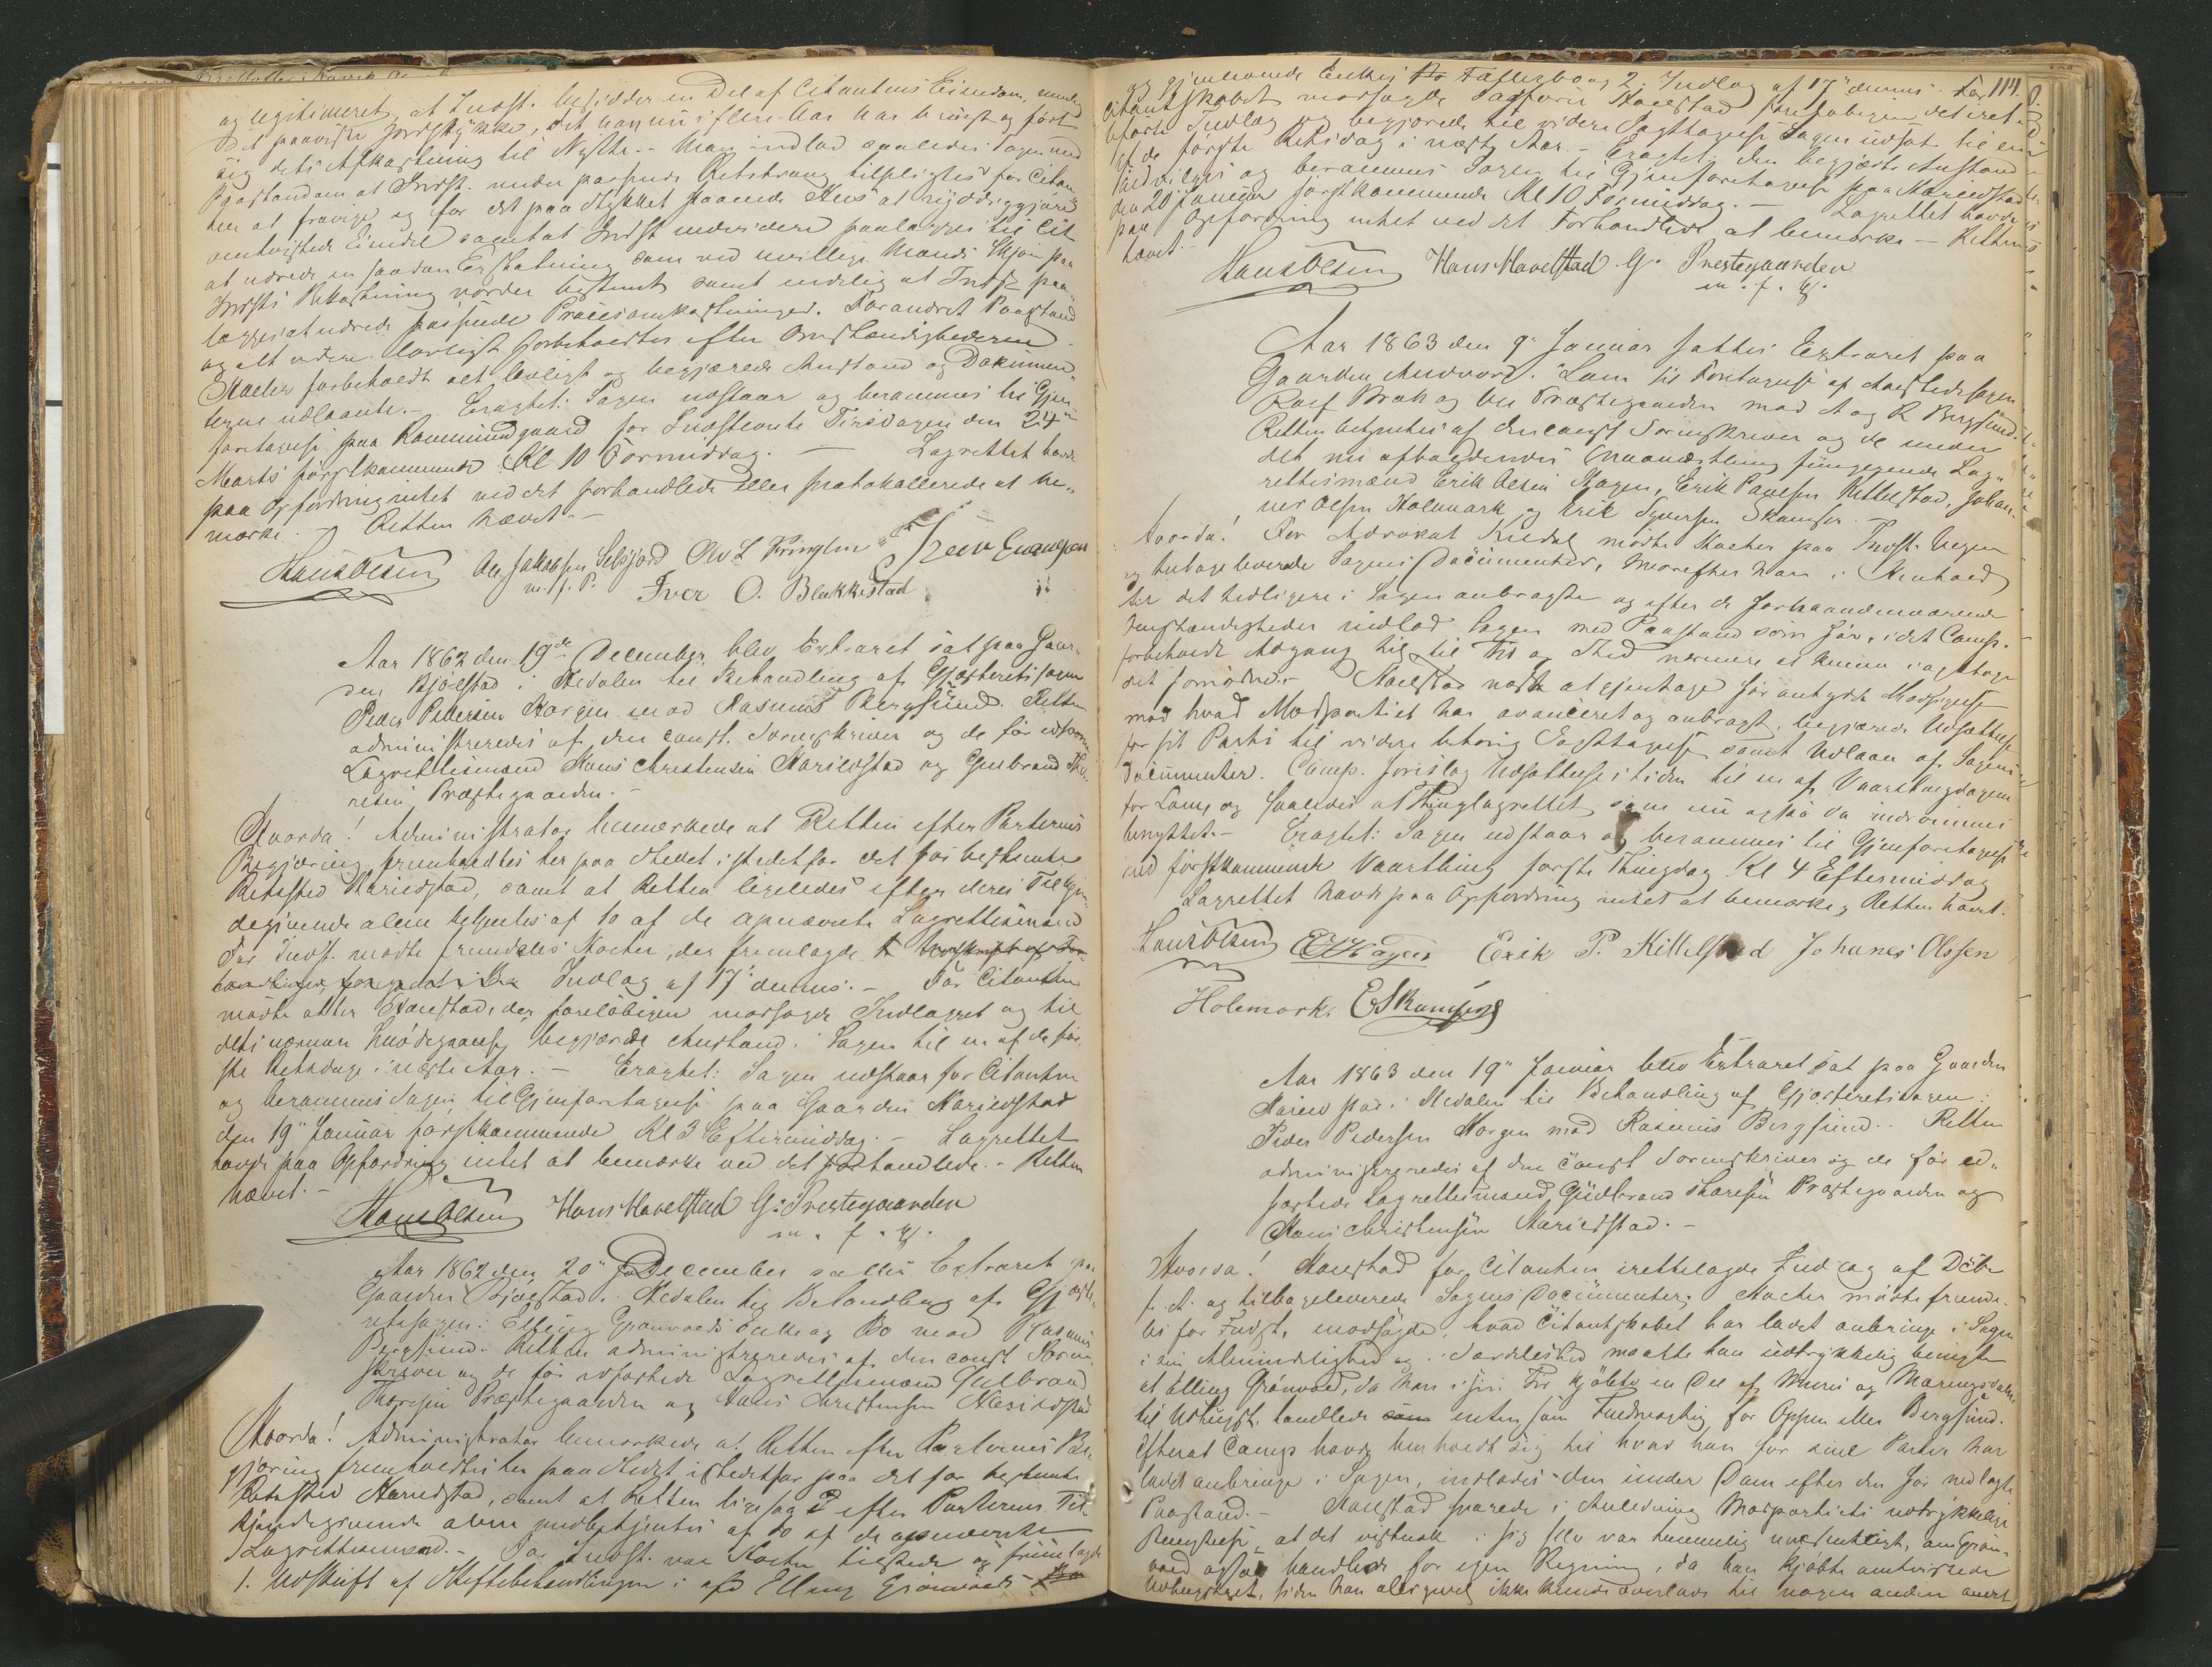 og legitimeret, at Indst. besidder en Del af Citantens Eiendom, nemlig
det paaviste Jordstykke, det han nu i flere Aar har brugt og ført
sig dets Afkastning til Nytte. - Man indlod saaledes Sagen med
Paastand om at Indst. under passende Retstvang tilpligtes for Citan-
ten at fravige og for det paa Stykket staaende Huus at ryddiggjøre
omtvistede Eiendel samt at Indst. endvidere paalægges til Cit.
at udrede en saadan Erstatning som ved uvillige Mænds Skjøn paa
Indsts Bekostning vorder bestemt samt endelig at Indst. paa-
lægges at udrede passende Procesomkostninger. Forandret Paastand
og alt videre lovligt forbeholdtes efter Omstændighederne.
Stacher forbeholdt alt lovligt og begjærede Anstand og Dokumen-
terne udlaante. - Eragtet: Sagen udstaar og berammes til Gjen-
foretagelse paa Rammundgaard for Indstevnte Tirsdagen den 24
Marts førstkommende Kl 10 Formiddag. - Lagrettet havde
paa Opfordring intet ved det forhandlede eller protokollerede at be-
mærke. - Retten hævet. -
Hans Olsen Ole Jakobsen Selsjord Ole L Kringlen Iver Evensen
m. f. P. Iver O. Blakkestad
Aar 1862 den 19de December blev Extraret sat paa Gaar-
den Bjølstad i Hedalen til Behandling af Gjæsteretssagen
Peder Pedersen Horgen mod Rasmus Bergsund. Retten
administreredes af den const. Sorenskriver og de før edsvorne
Lagrettesmænd Hans Christensen Harildstad og Gulbrand Tho-
resen Præstegaarden. -
Hvorda! Administrator bemærkede at Retten efter Parternes
Begjæring fremholdtes her paa Stedet istedetfor det før bestemte
Retssted Harildstad, samt at Retten ligeledes efter deres Tilkjen-
degivende alene betjentes af to af de opnævnte Lagrettesmænd
For Indst. mødte fremdeles Stacher, der fremlagde
Indlæg af 17 dennes. - For Citanten
mødte atter Harestad, der foreløbigen modsagde Indlægget og til
dets nærmere Imødegaaelse begjærede Anstand i Sagen til en af de før-
ste Retsdage i næste Aar. - Eragtet: Sagen udstaar for Citanten
og berammes Sagen til Gjenforetagelse paa Gaarden Harildstad
den 19 Januar førstkommende Kl 3 Eftermiddag. - Lagrettet
havde paa Opfordring intet at bemærke ved det forhandlede. - Retten
hævet. -
Hans Olsen Hans Harelstad G: Prestegaarden
m. f. P.
Aar 1862 den 20 December sattes Extraret paa
Gaarden Bjølstad i Hedalen til Behandling af Gjæste-
retssagen: Elling Grønvolds Enke og Bo mod Rasmus
Bergsund. Retten administreredes af den const Soren-
skriver og de før edfæstede Lagrettesmænd Gulbrand
Thoresen Præstegaarden og Hans Christensen Harildstad
Hvorda! Administrator bemærkede at Retten efter Parternes Be-
gjæring fremholdtes her paa Stedet istedetfor paa det før bestemte
Retssted Harildstad, samt at Retten ligesaa efter Parternes Til-
kjendegivende alene betjentes af to af de opnævnte
Lagrettesmænd. - For Indst. var Stacher tilstede og fremlagde
1. Udskrift af Skiftebehandlingen i afd Elling Grønvolds
og gjenlevende Enkes Fællesbo og 2. Indlæg af 17 dennes. For 114.
Citantskabet modsagde Sagfører Harestad foreløbigen det iret-
førte Indlæg og begjærede til videre Iagttagelse Sagen udsat til en
af de første Retsdage i næste Aar. - Eragtet: den begjærte Anstand
tilbevilges og berammes Sagen til Gjenforetagelse paa Harildstad
den 20 Januar førstkommende Kl 10 Formiddag. - Lagrettet havde
paa Opfordring intet ved det Forhandlede at bemærke - Retten
hævet. -
Hans Olsen Hans Harelstad G. Prestegaarden
m. f. P.
Aar 1863 den 9 Januar sattes Extraret paa
Gaarden Andvord i Lom til Foretagelse af Aastedssagen
Rolf Brok og Ole Præstegaarden mod A og R Bergsund.
Retten betjentes af den const Sorenskriver og de under
det nu afholdendes Maanedsthing fungerende Lag-
rettesmænd Erik Olsen Hagen, Erik Paulsen Kittelstad, Johan-
nes Olsen Holemark og Erik Syversen Skamsar.
Hvorda! For Advokat Riddel mødte Stacher paa Indst. Vegne
og tilbageleverede Sagens Documenter, hvorefter han i Henhold
til det tidligere i Sagen anbragte og efter de forhaandenværende
Omstændigheder indlod Sagen med Paastand som før, idet Comp.
forbeholdt Adgang til til Tid og Sted nærmere at kunne iagttage
det fornødne. - Harestad næst at gjentage før antydede Modsigelse
mod hvad Modpartiet har avanceret og anbragt, begjærede Udsættelse
for sit Parti til videre behørig Iagttagelse samt Udlaan af Sagens
Documenter. Comp. foreslog Udsættelse i tiden til en af Vaarthingdagene
for Lom, og saaledes at Thinglagrettet som nu ogsaa da indrømmes
benyttet. - Eragtet: Sagen udstaar og berammes til Gjenforetagelse
ved førstkommende Vaarthing første Thingdag Kl 4 Eftermiddag
Lagrettet havde paa Opfordring intet at bemærke, Retten hævet.
Hans Olsen E O Hagen Erik P. Kittelstad Johanes Olssen
Holemork. E S Skamsar
Aar 1863 den 19 Januar blev Extraret sat paa Gaarden
Harildstad i Hedalen til Behandling af Gjæsteretssagen:
Peder Pedersen Horgen mod Rasmus Bergsund. - Retten
administreredes af den const Sorenskriver og de før ed-
fæstede Lagrettesmænd, Gudbrand Thoresen Præstegaarden og
Hans Christensen Harildstad. -
Hvorda! Harestad for Citanten irettelagde Indlæg af Dato
s. A. og tilbageleverede Sagens Documenter. Stacher mødte fremde-
les for Indst., modsagde, hvad Citantskabet har ladet anbringe i Sagen
i sin Almindelighed og i Særdeleshed maatte han udtrykkelig benegte
at Elling Grønvold, da han i sin Tid kjøbte en Del af Muru og
til Udhugst, handlede enten som Fuldmægtig for Oppen eller Bergsund.
Efterat Comp havde henholdt sig til hvad han for sine Parter har
ladet anbringe i Sagen, indlodes den under Dom efter den før nedlagte
Paastand. - Harestad svarede i Anledning Modpartiets udtrykkelige
Benegtelse, at det vistnok i sig selv var temmelig uvæsentligt, om Grøn-
vold ogsaa handlede for egen Regning, da han kjøbte omtvistede
Udhugstret, siden han alligevel ikke kunde overlade til nogen anden